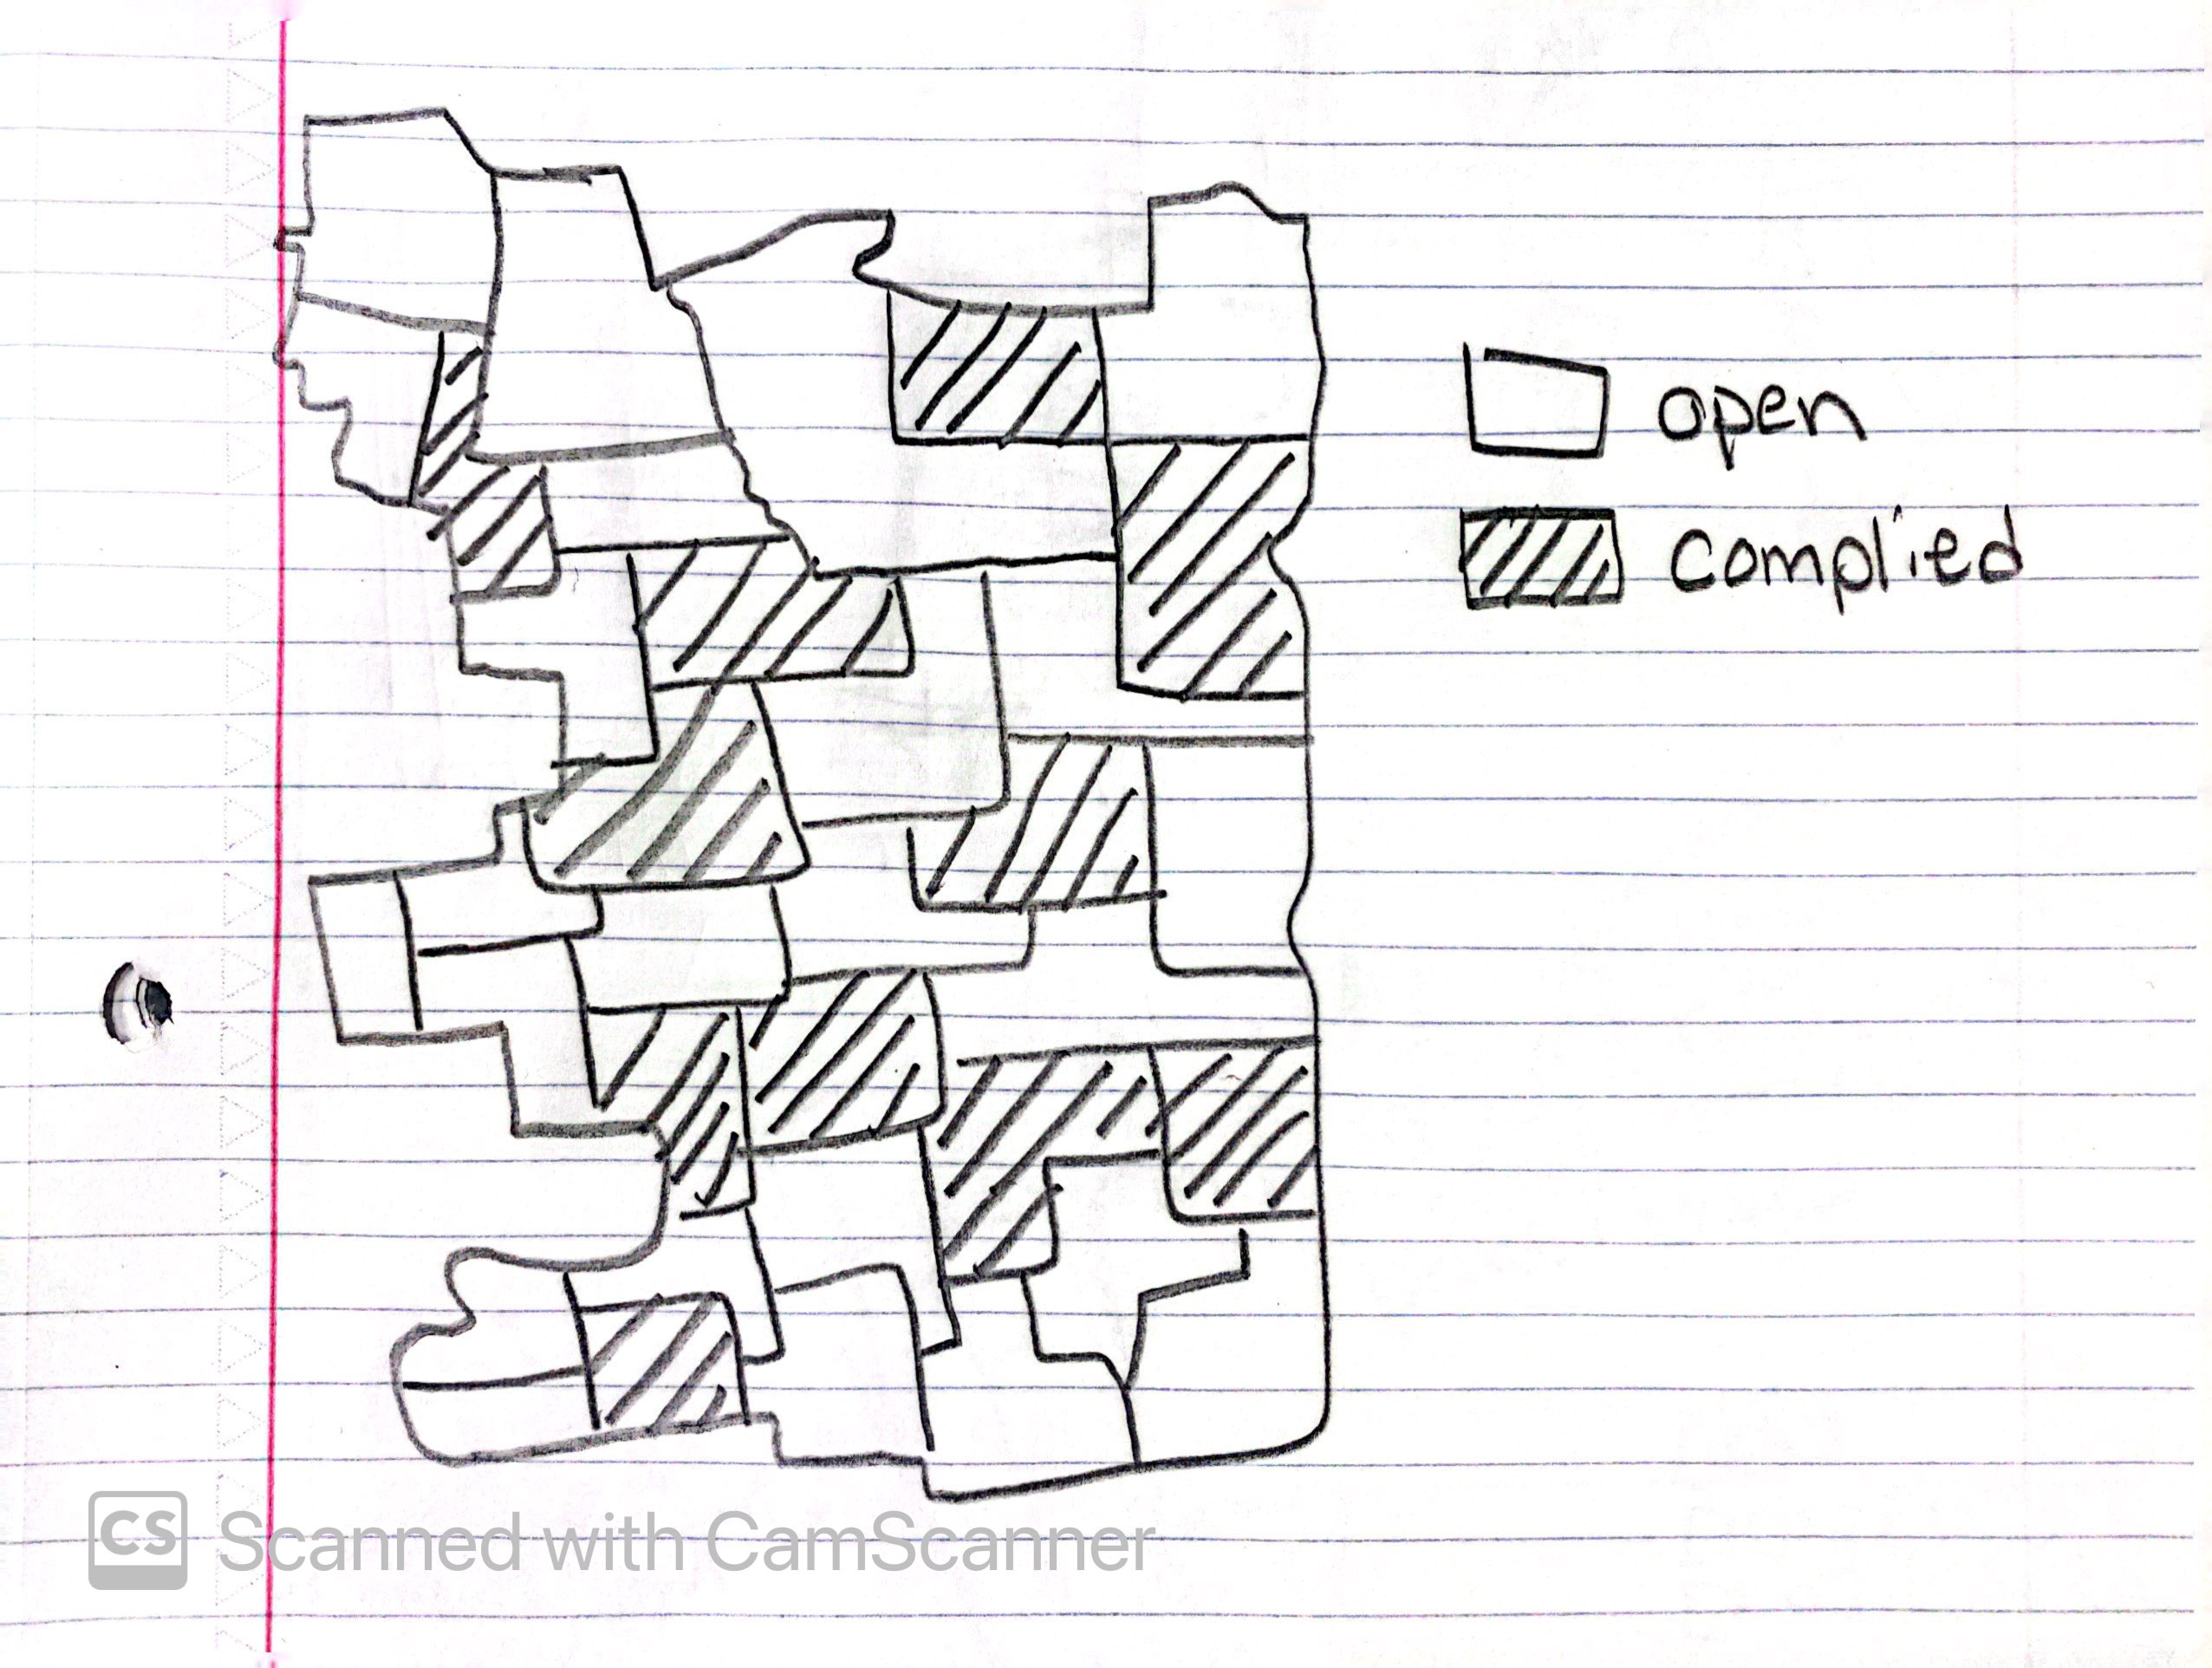 open
complied
CS Scanned with CamScanner